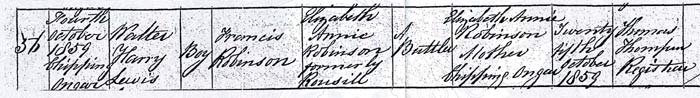 56
Fourth
October
1859
Chipping
Ongar
Walter
Harry
Lewis
Boy
Francis
Robinson
Elizabeth
Annie
Robinson
formerly
Rousill
A
Butler
Elizabeth Annie
Robinson
Mother
Chipping Ongar
Twenty
fifth
October
1859
Thomas
Registrar